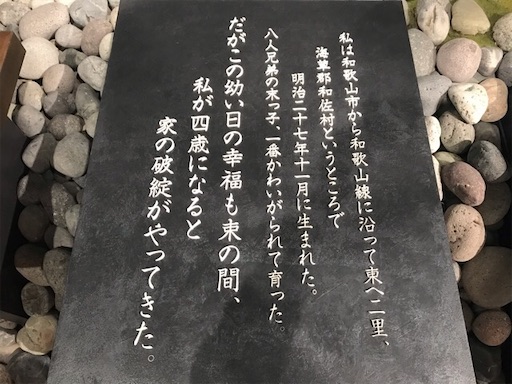 私は和歌山市から和歌山線に沿って東へ二里、
海草郡和佐村というところで
明治二十七年十一月に生まれた。
八人兄弟の末っ子、一番かわいがられて育った。
だがこの幼い日の幸福も束の間、
私が四歳になると
家の破綻がやってきた。